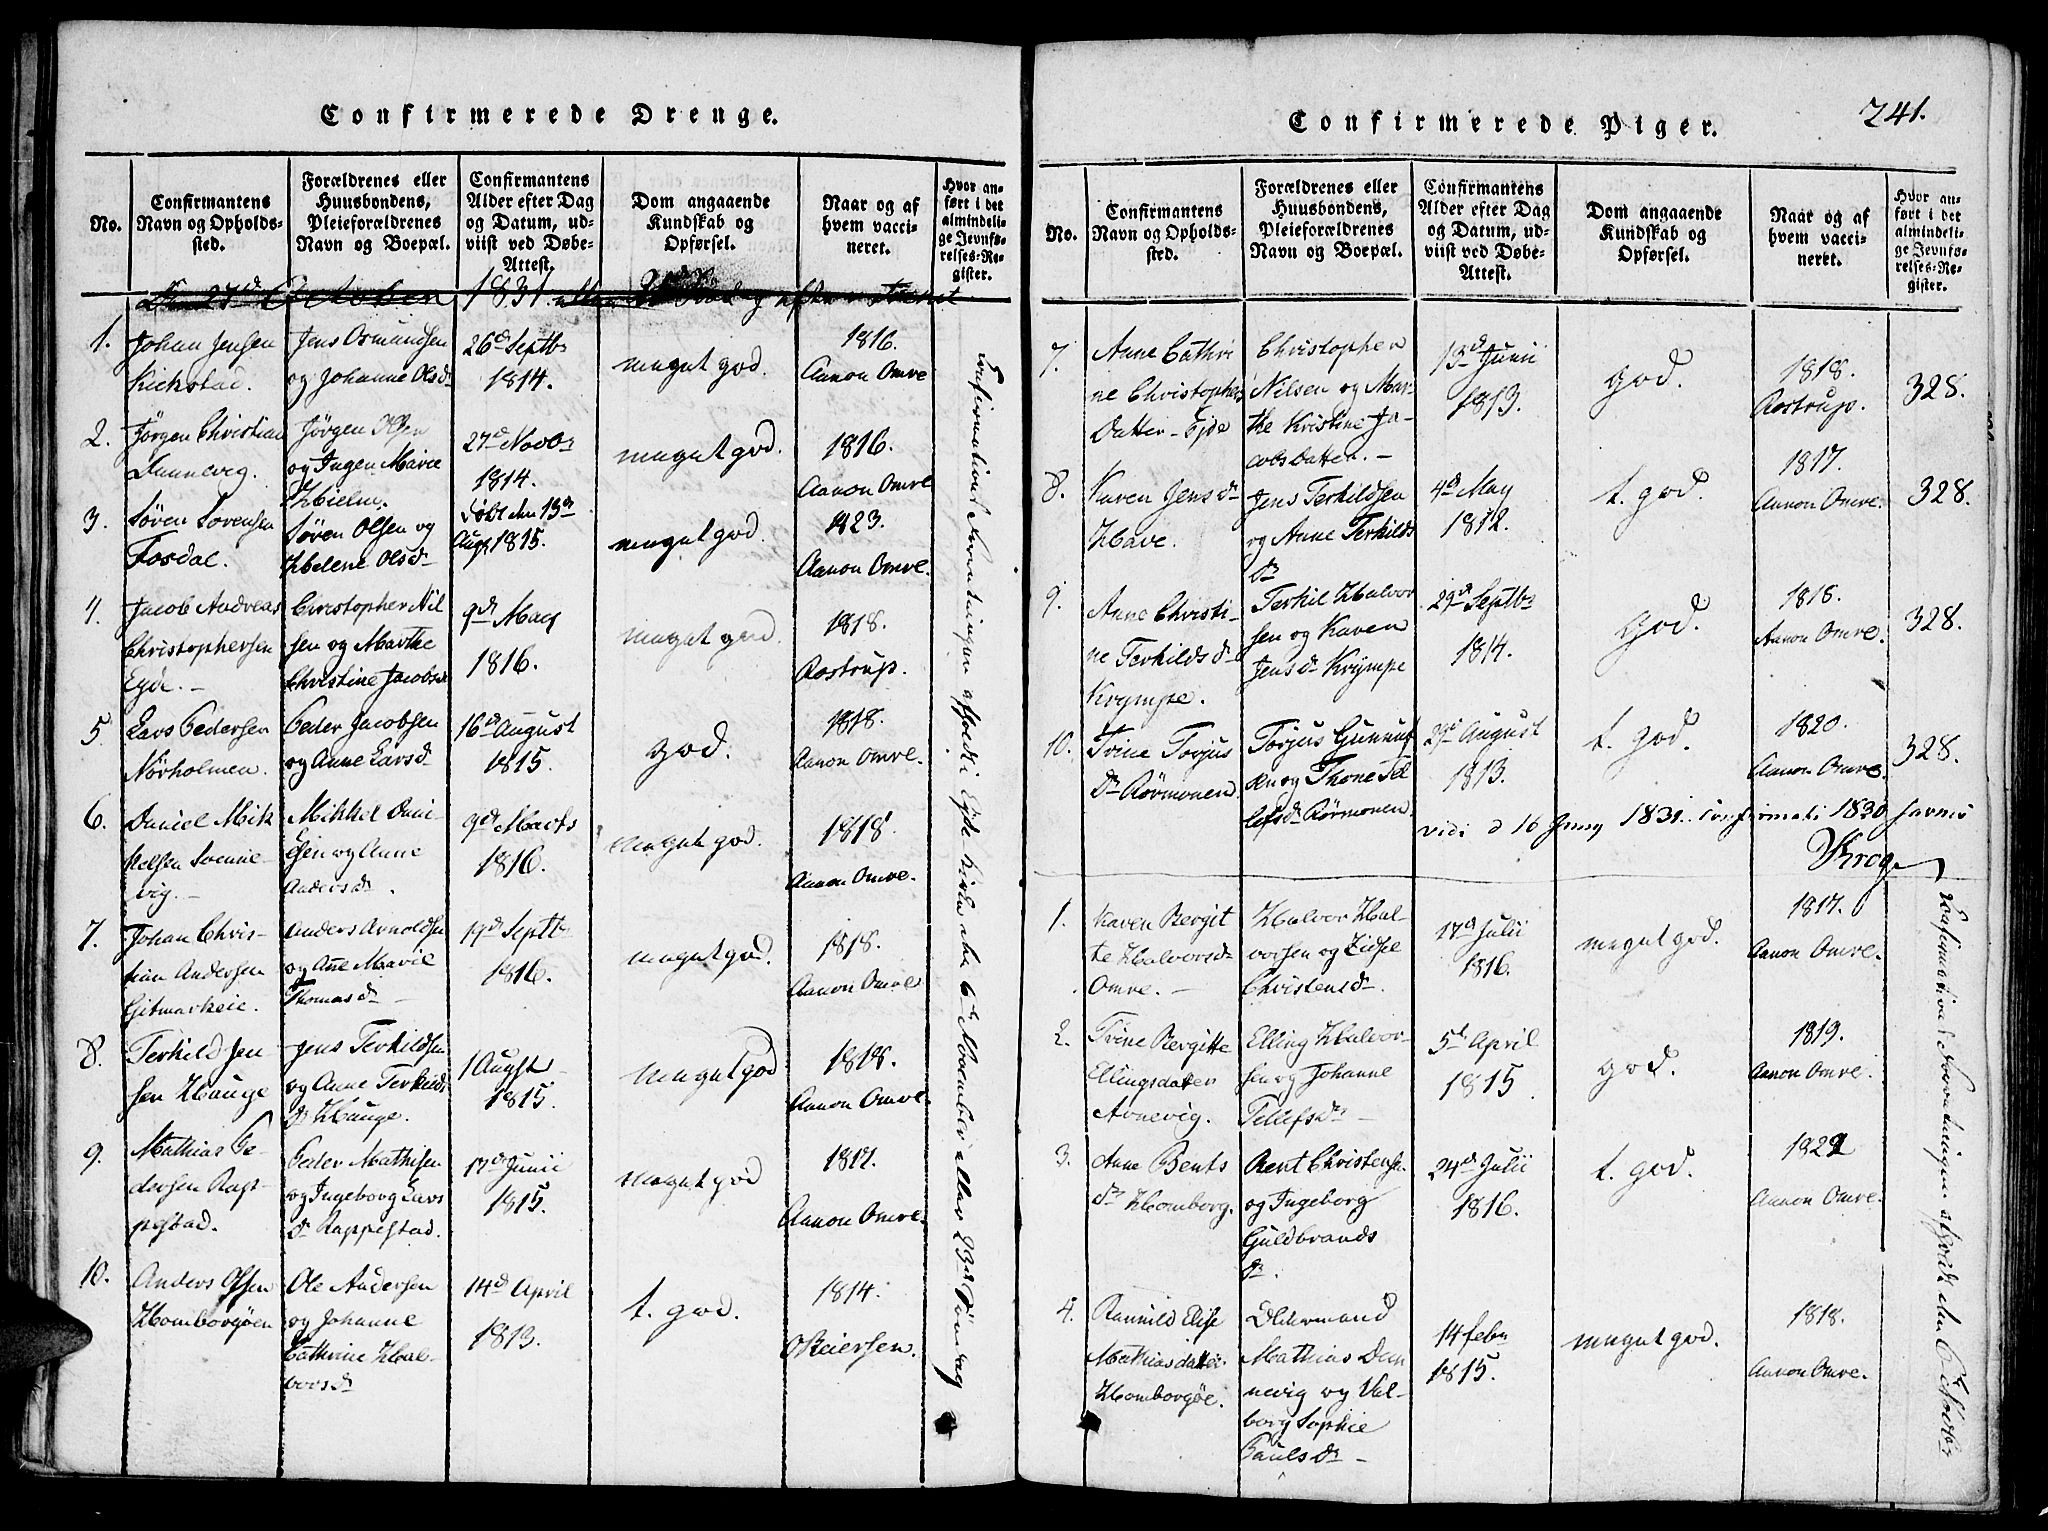 Confirmerede Drenge.
No.
Confirmantens
Navn og Opholds-
sted.
Forældrenes eller
Huusbondens,
Pleieforældrenes
Navn og Boepæl.
Confirmantens
Alder efter Dag
og Datum, ud-
viist ved Døbe-
Attest.
Dom angaaende
Kundskab og
Opførsel.
Naar og af
hvem vacci-
neret.
Hvor an-
ført i det
almindeli-
ge Jevnfø-
relses-Re-
gister.
October 1831.
1.
Johan Jensen
Kickstad.
Jens Osmundsen
og Johanne Olsdr
26de Septbr
1814.
meget god.
1816.
Aanon Omre
2.
Jørgen Christian
Dannevig.
Jørgen
og Ingen Marie
Hielm.
27de Novbr
1814.
meget god.
1816.
Aanon Omre
3.
Søren Sørensen
Fosdal.
Søren Olsen og
Helene Olsdr
døbt den 13de
Aug 1815.
meget god.
1823.
Aanon Omre.
4.
Jacob Andreas
Christophersen
Eyde. –
Christopher Nil
sen og Marthe
Christine Jacobsdr
9de May
1816.
meget god
1818.
Rostrup.
5
Lars Pedersen
Nørholmen.
Peder Jacobsen
og Anne Larsdr
16de August
1815.
god.
1818.
Aanon Omre.
6.
Daniel Mik
kelsen Svenne-
vig. –
Mikkel Dani-
elsen og Anne
Andersdr.
9de Marts
1816.
meget god.
1818.
Aanon Omre.
7.
Johan Chris-
tian Andersen
Gitmarkeie.
Anders Arnoldsen
og Anne Marie
Thomasdr –
19de Septbr
1816.
meget god.
1818.
Aanon Omre
8.
Terkild Jen
sen Hauge
Jens Terkildsen
og Anne Terkilds
dr Hauge.
1 August
1815.
meget god
1818.
Aanon Omre.
9.
Mathias Pe-
dersen Rap-
pestad.
Peder Mathisen
og Ingeborg Lars
dr Rappestad.
17de Junii
1815.
meget god
1817.
Aanon Omre.
10.
Anders Olsen
Homborgöen
Ole Andersen
og Johanne
Cathrine Hal-
vorsdr
14de April
1813.
t. god.
1814.
O Reiersen.
Confirmationsforretningen afholdt i Eyde Kirke den 6te November eller 23de Søndag
Confirmerede Piger.
241.
No.
Confirmantens
Navn og Opholds-
sted.
Forældrenes eller
Huusbondens,
Pleieforældrenes
Navn og Boepæl.
Confirmantens
Alder efter Dag
og Datum, ud-
viist ved Døbe-
Attest.
Dom angaaende
Kundskab og
Opførsel.
Naar og af
hvem vacci-
neret.
Hvor an-
ført i det
almindeli-
ge Jevnfø-
relses-Re-
gister.
7.
Anne Cathri
ne Christophers
Datter – Ejde
Christopher
Nilsen og Mar-
the Kristine Ja-
cobsdatter. –
13de Junii
1813.
god.
1818.
Rostrup.
328.
8.
Karen Jensdr
Have.
Jens Terkildsen
og Anne Terkilds
dr
4de May
1812.
t. god.
1817.
Aanon Omre.
328.
9.
Anne Christi-
ne Terkildsdr
Krympe.
Terkil Halvor
sen og Karen
Jensdr Krympe
29de Septbr
1814.
god.
1818.
Aanon Omre.
328.
10.
Trine Torjus
dr Rørmonen.
Torjus Gunnuf
sen og Thone Tel
lefsdr Rørmonen.
29de August
1813.
t. god.
1820.
Aanon Omre
328.
vidi d 16 1831. confirmati 1830
Krog
1.
Karen Bergit
te Halvorsdr
Omre. –
Halvor Hal-
vorsen og Zidsel
Christensdr.
17de Julii
1816.
meget god.
1817.
Aanon Omre.
2.
Trine Bergitte
Ellingsdatter
Arnevig.
Elling Halvor-
sen og Johanne
Tellefsdr
5te April
1815
god.
1819.
Aanon Omre.
3.
Anne Bents
dr Homborg.
Bent Christensen
og Ingeborg
Guldbrands
dr.
24de Julii
1816.
t. god.
1822
Aanon Omre.
4.
Rannild Elise
Mathiasdatter
Homborgøe.
Oldermand
Mathias Dan
nevig og Val-
borg Sophie
Paulsdr –
14 febr
1815.
meget god.
1818.
Aanon Omre.
Confirmations forretningen afholdt den 6te Novbr